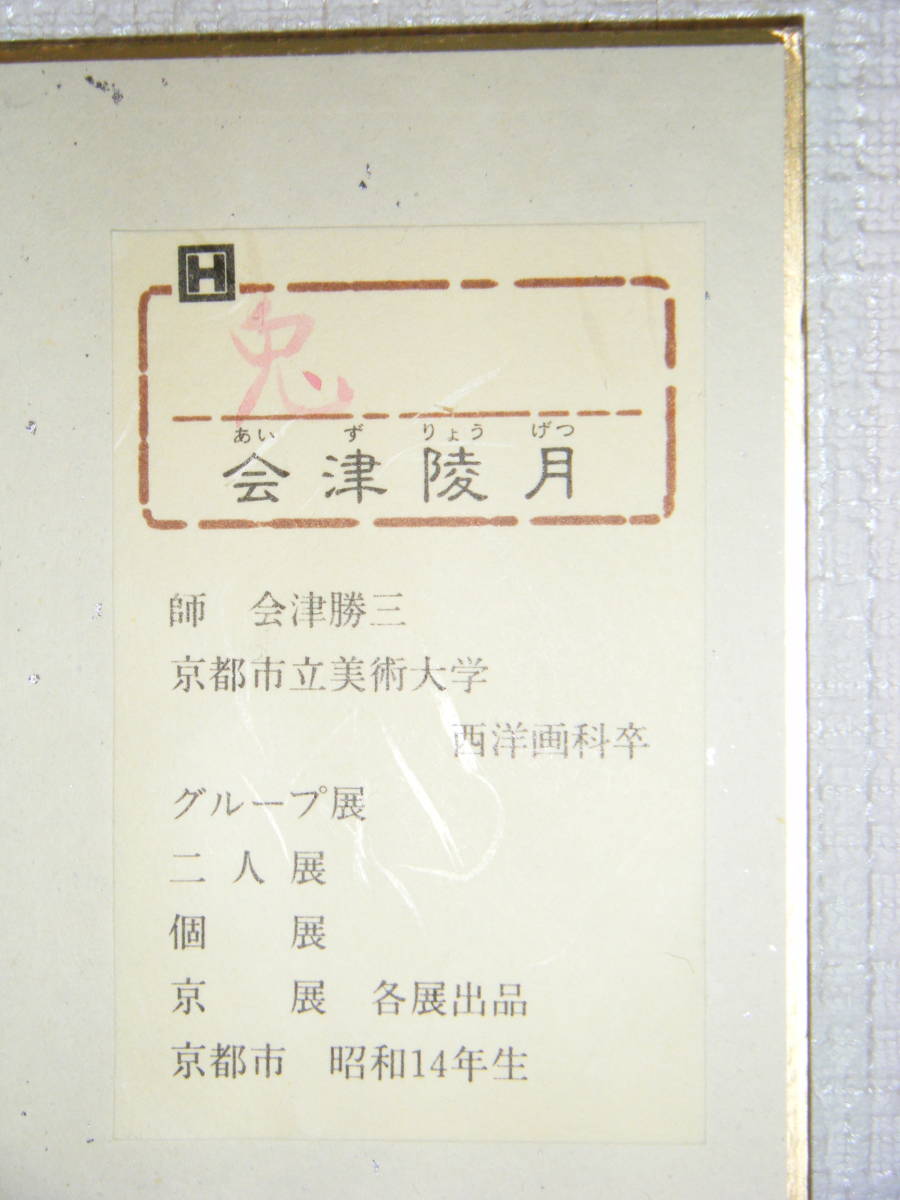 H
兎
あい ず りょう げつ
会津陵月
師 会津勝三
京都市立美術大学
西洋画科卒
グループ展
二人展
個 展
京 展 各展出品
京都市 昭和14年生